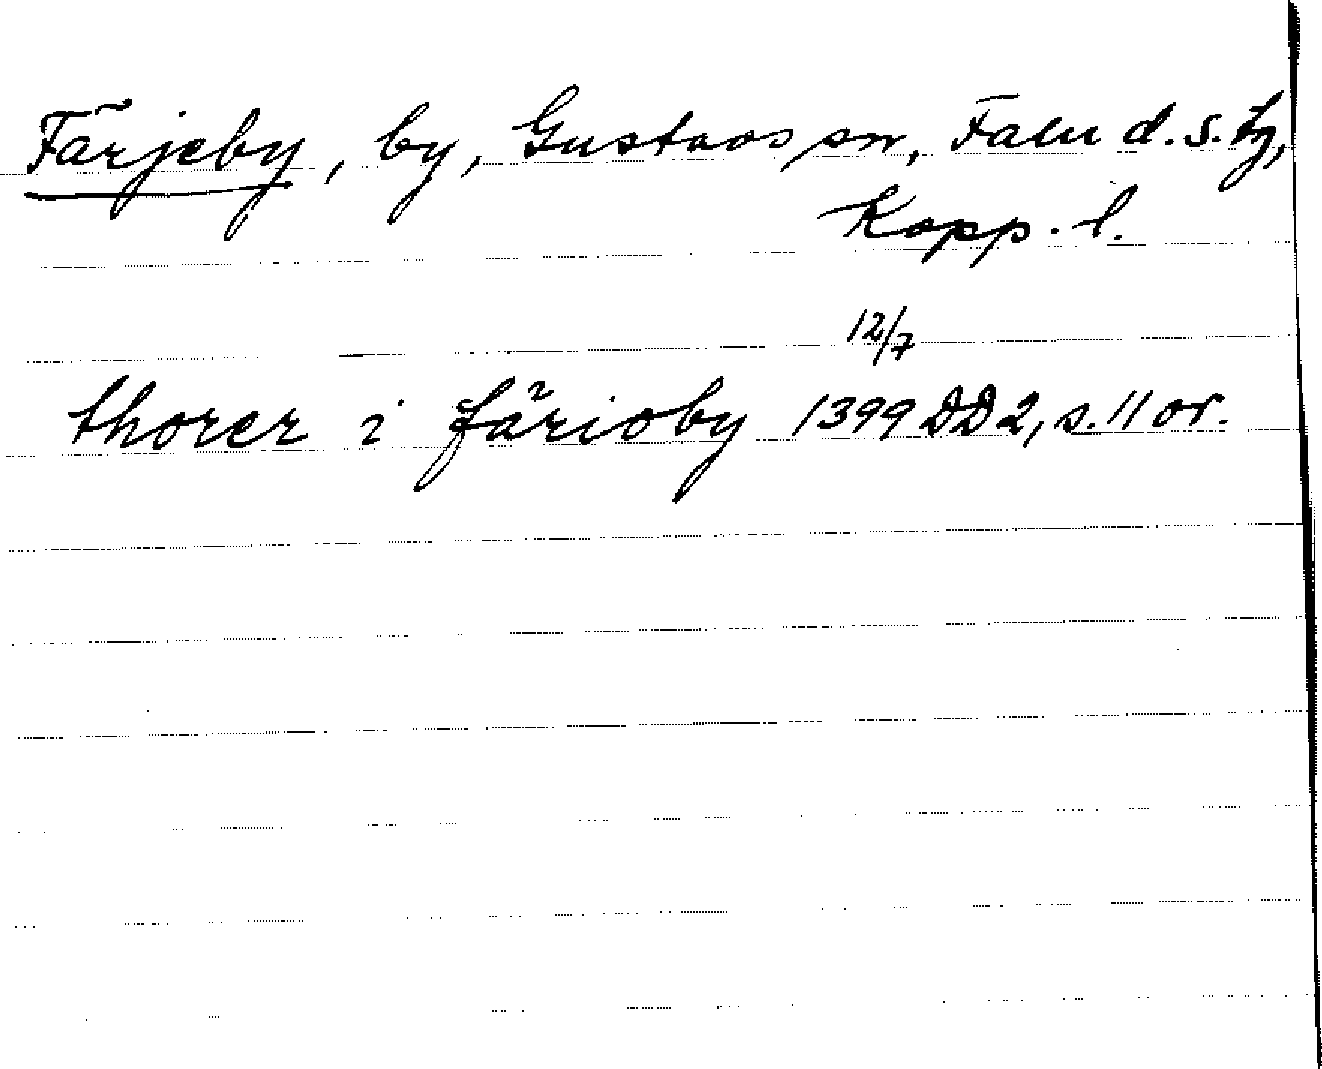 Färjeby, by, Gustavs sn, Falu d.s. tg,
Kopp. l.
12/7
thorer i färioby 1399 DD2, s. 11 or.